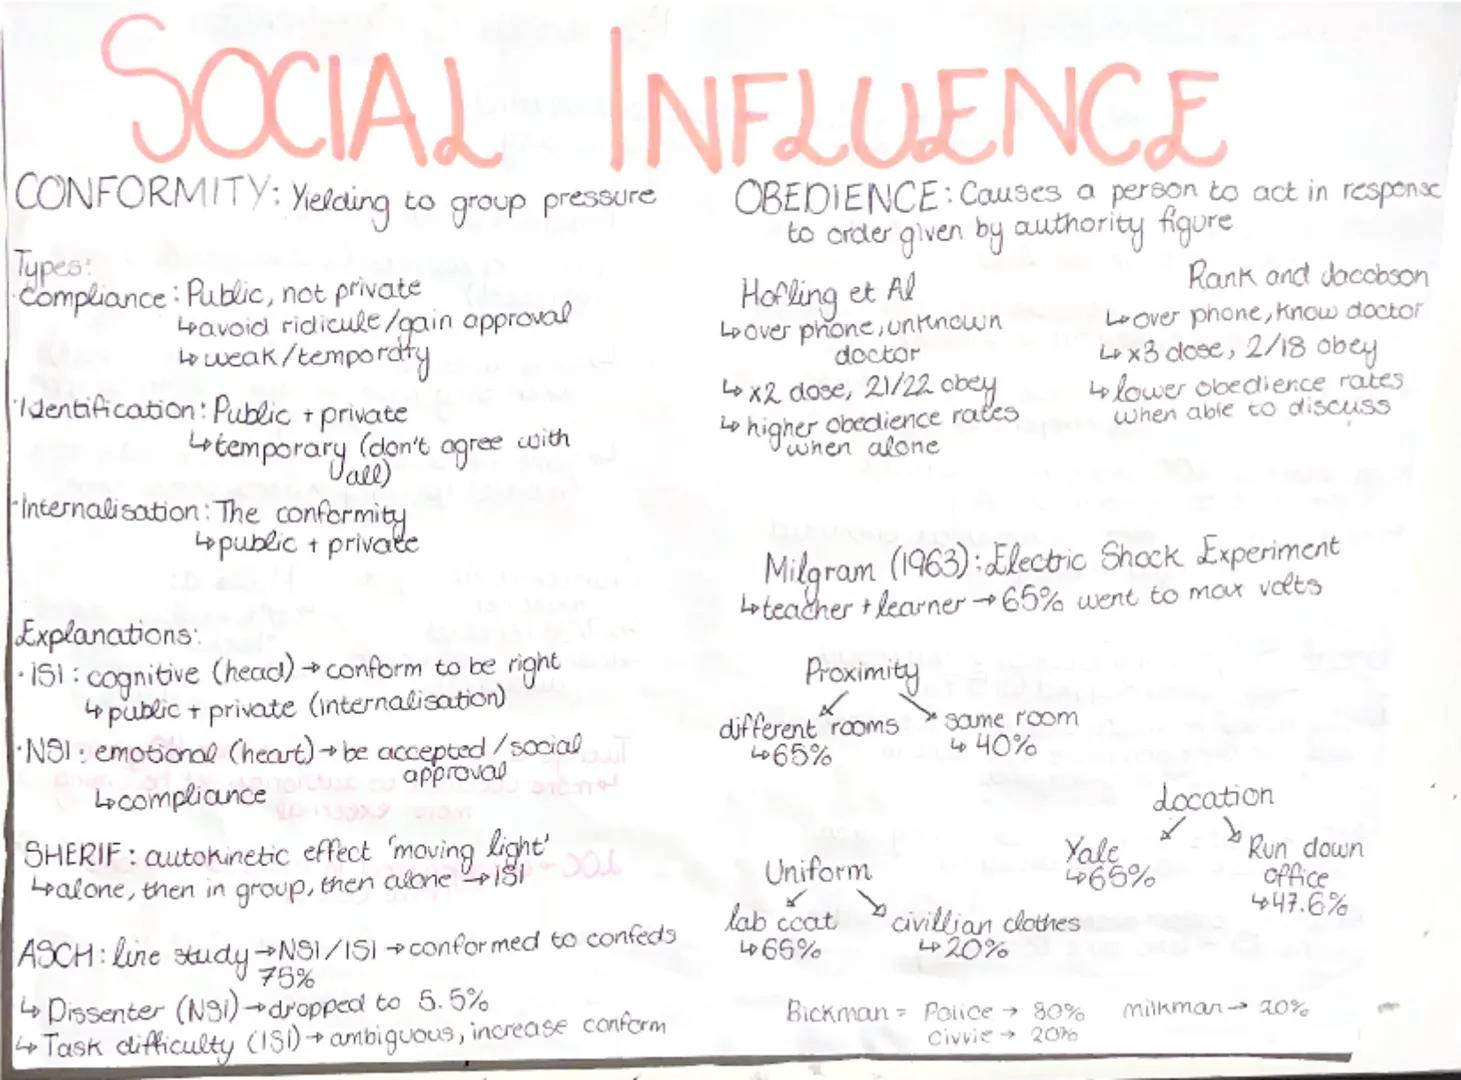 SOCIAL INFLUENCE
CONFORMITY: Yielding to group pressure
Types:
·Compliance: Public, not private
↳avoid ridicule/gain approval
↳weak/temporary
·Identification: Public + private
↳temporary (don't agree with
all)
·Internalisation: The conformity
↳public + private
Explanations:
·ISI: cognitive (head)→conform to be right
↳public + private (internalisation)
·NSI: emotional (heart)→be accepted/social
approval
↳compliance
SHERIF: autokinetic effect 'moving light'
↳alone, then in group, then alone→ISI
ASCH: line study→NSI/ISI→conformed to confeds
75%
↳Dissenter (NSI)→dropped to 5.5%
↳Task difficulty (ISI)→ambiguous, increase conform
OBEDIENCE: Causes a person to act in response
to order given by authority figure
Hofling et Al
↳over phone, unknown
doctor
↳x2 dose, 21/22 obey
↳higher obedience rates
when alone
Rank and Jacobson
↳over phone, know doctor
↳x3 dose, 2/18 obey
↳lower obedience rates
when able to discuss
Milgram (1963): Electric Shock Experiment
↳teacher + learner→65% went to max volts
Proximity
different rooms
↳65%
same room
↳40%
Location
Yale
↳65%
Run down
office
↳47.6%
Uniform
lab coat
↳65%
civillian clothes
↳20%
Bickman = Police → 80% milkman → 20%
Civvie → 20%